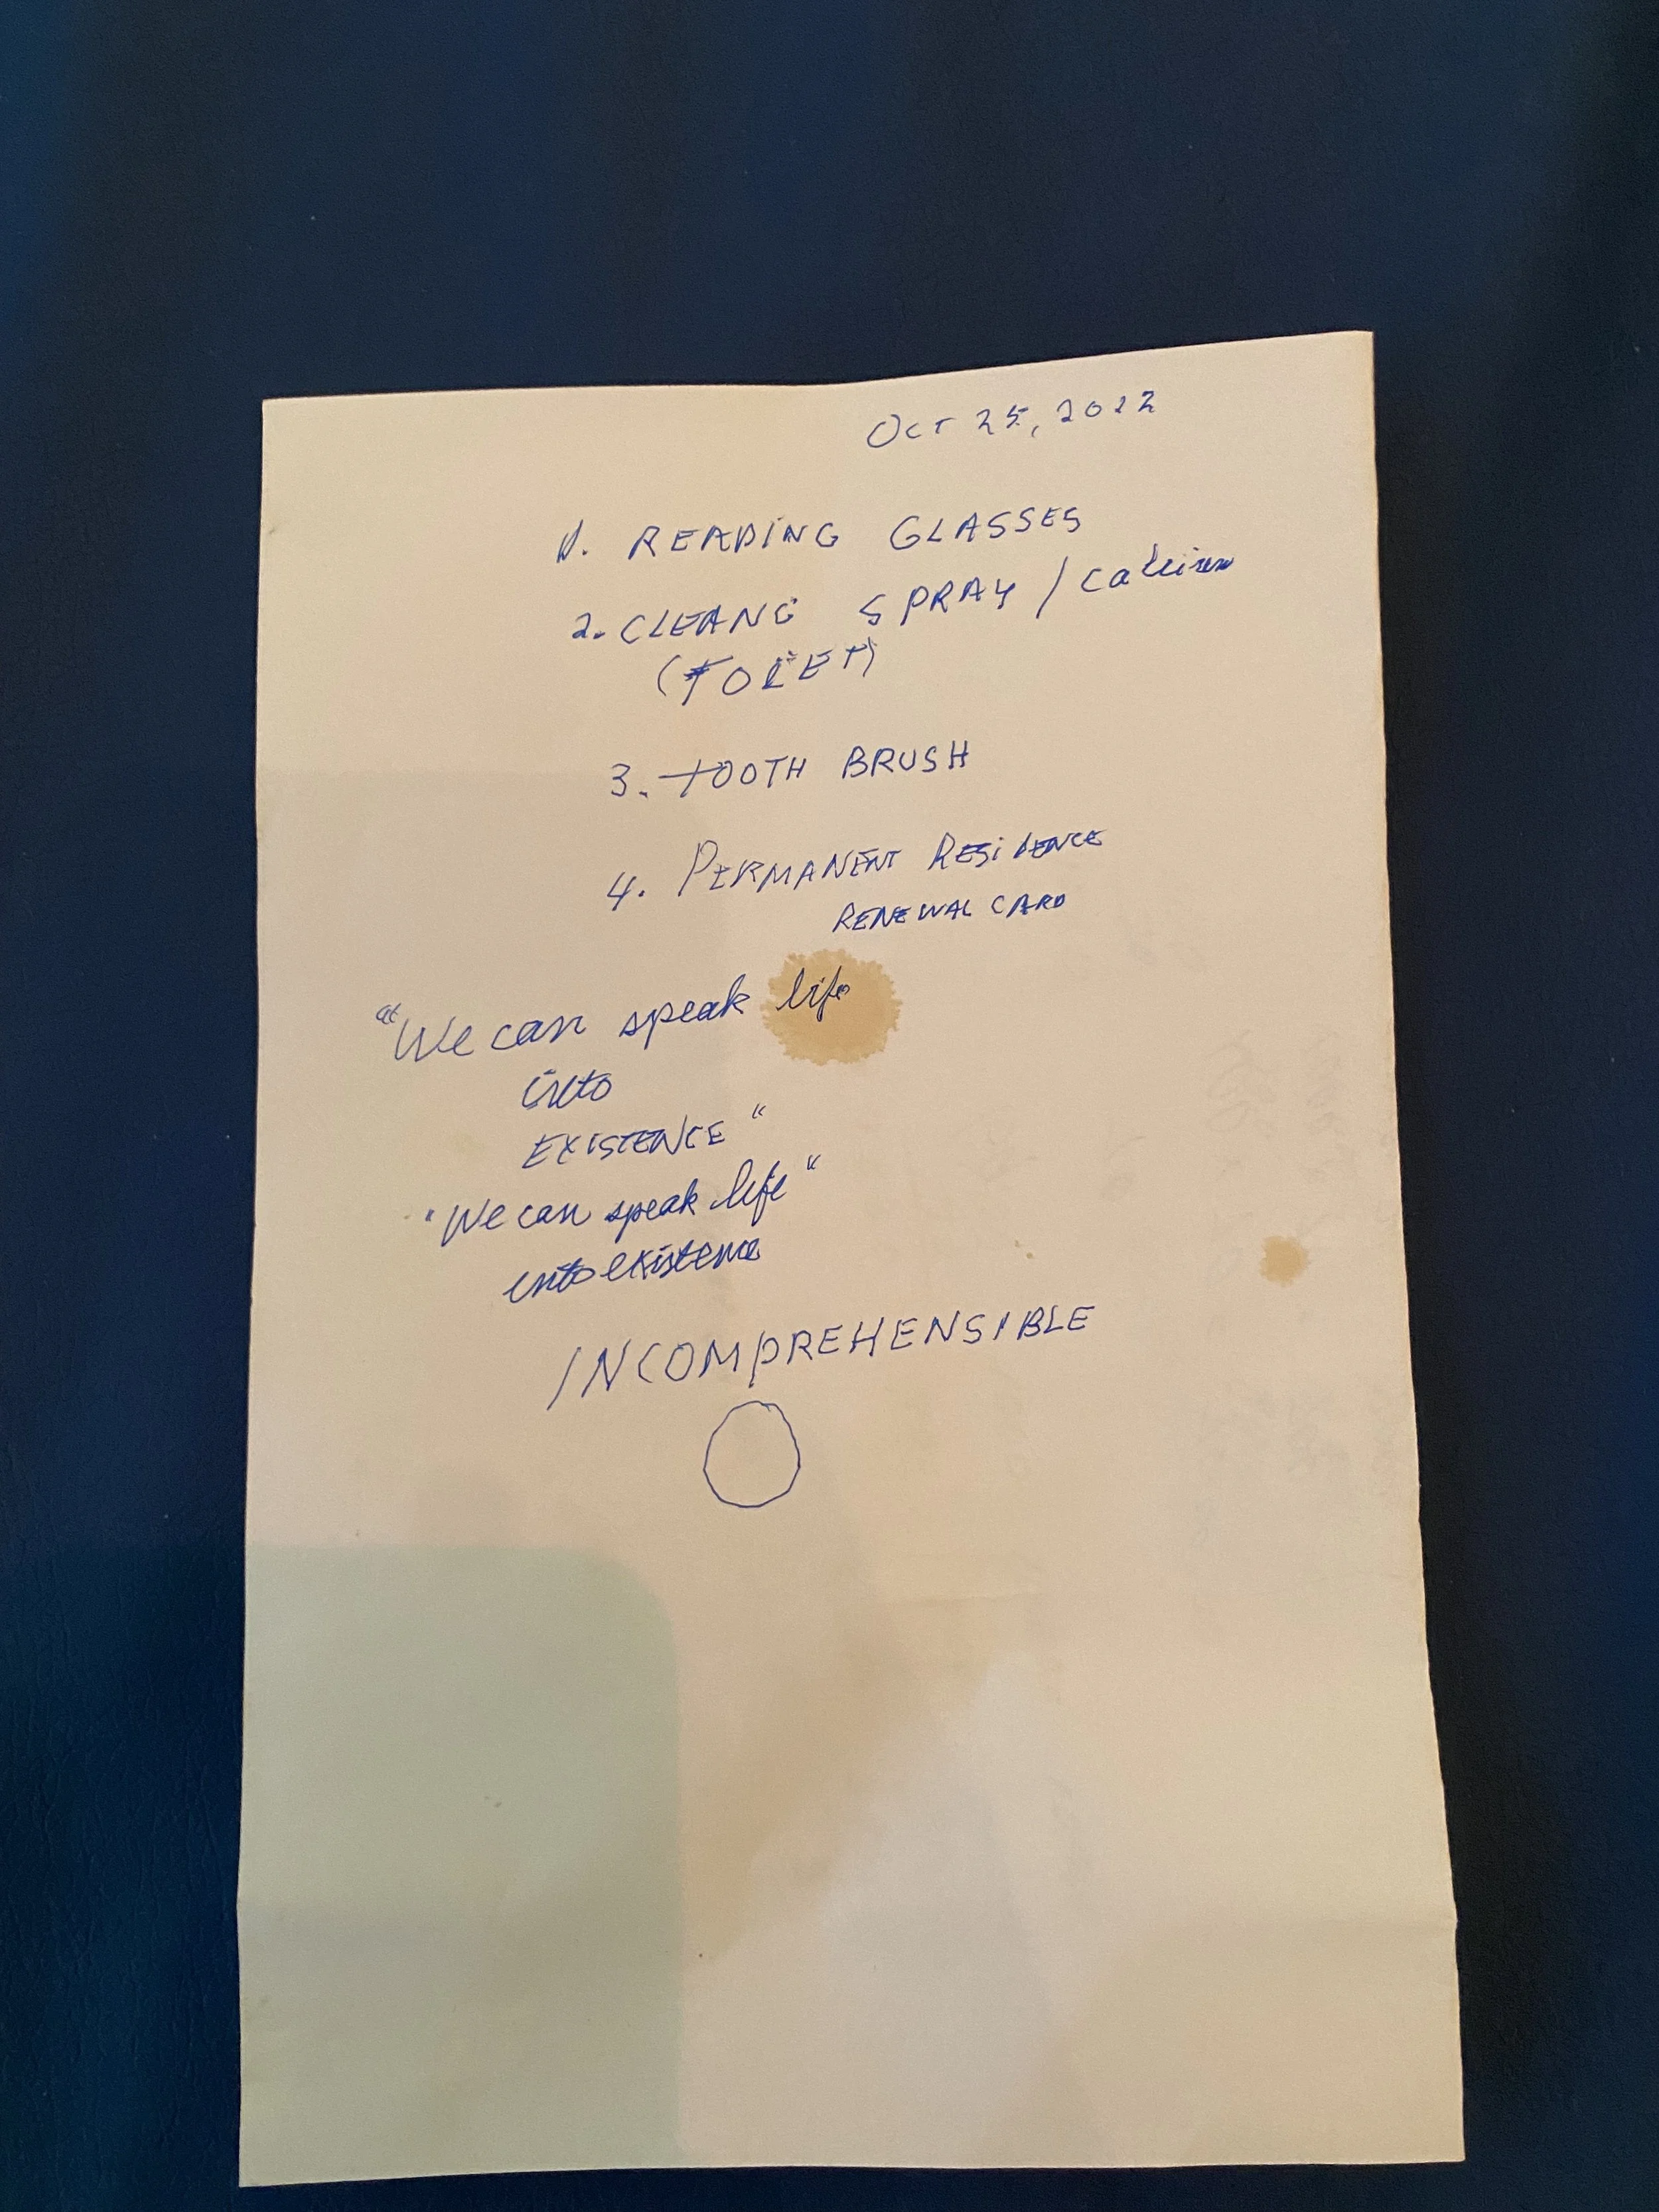 Oct 25, 2022
1. READING GLASSES
2. CLEANG SPRAY /
(TOILET)
3. TOOTH BRUSH
4. PERMANENT RESIDENCE
RENEWAL CARD
"We can speak life
into
EXISTENCE"
"We can speak life"
into existence
INCOMPREHENSIBLE